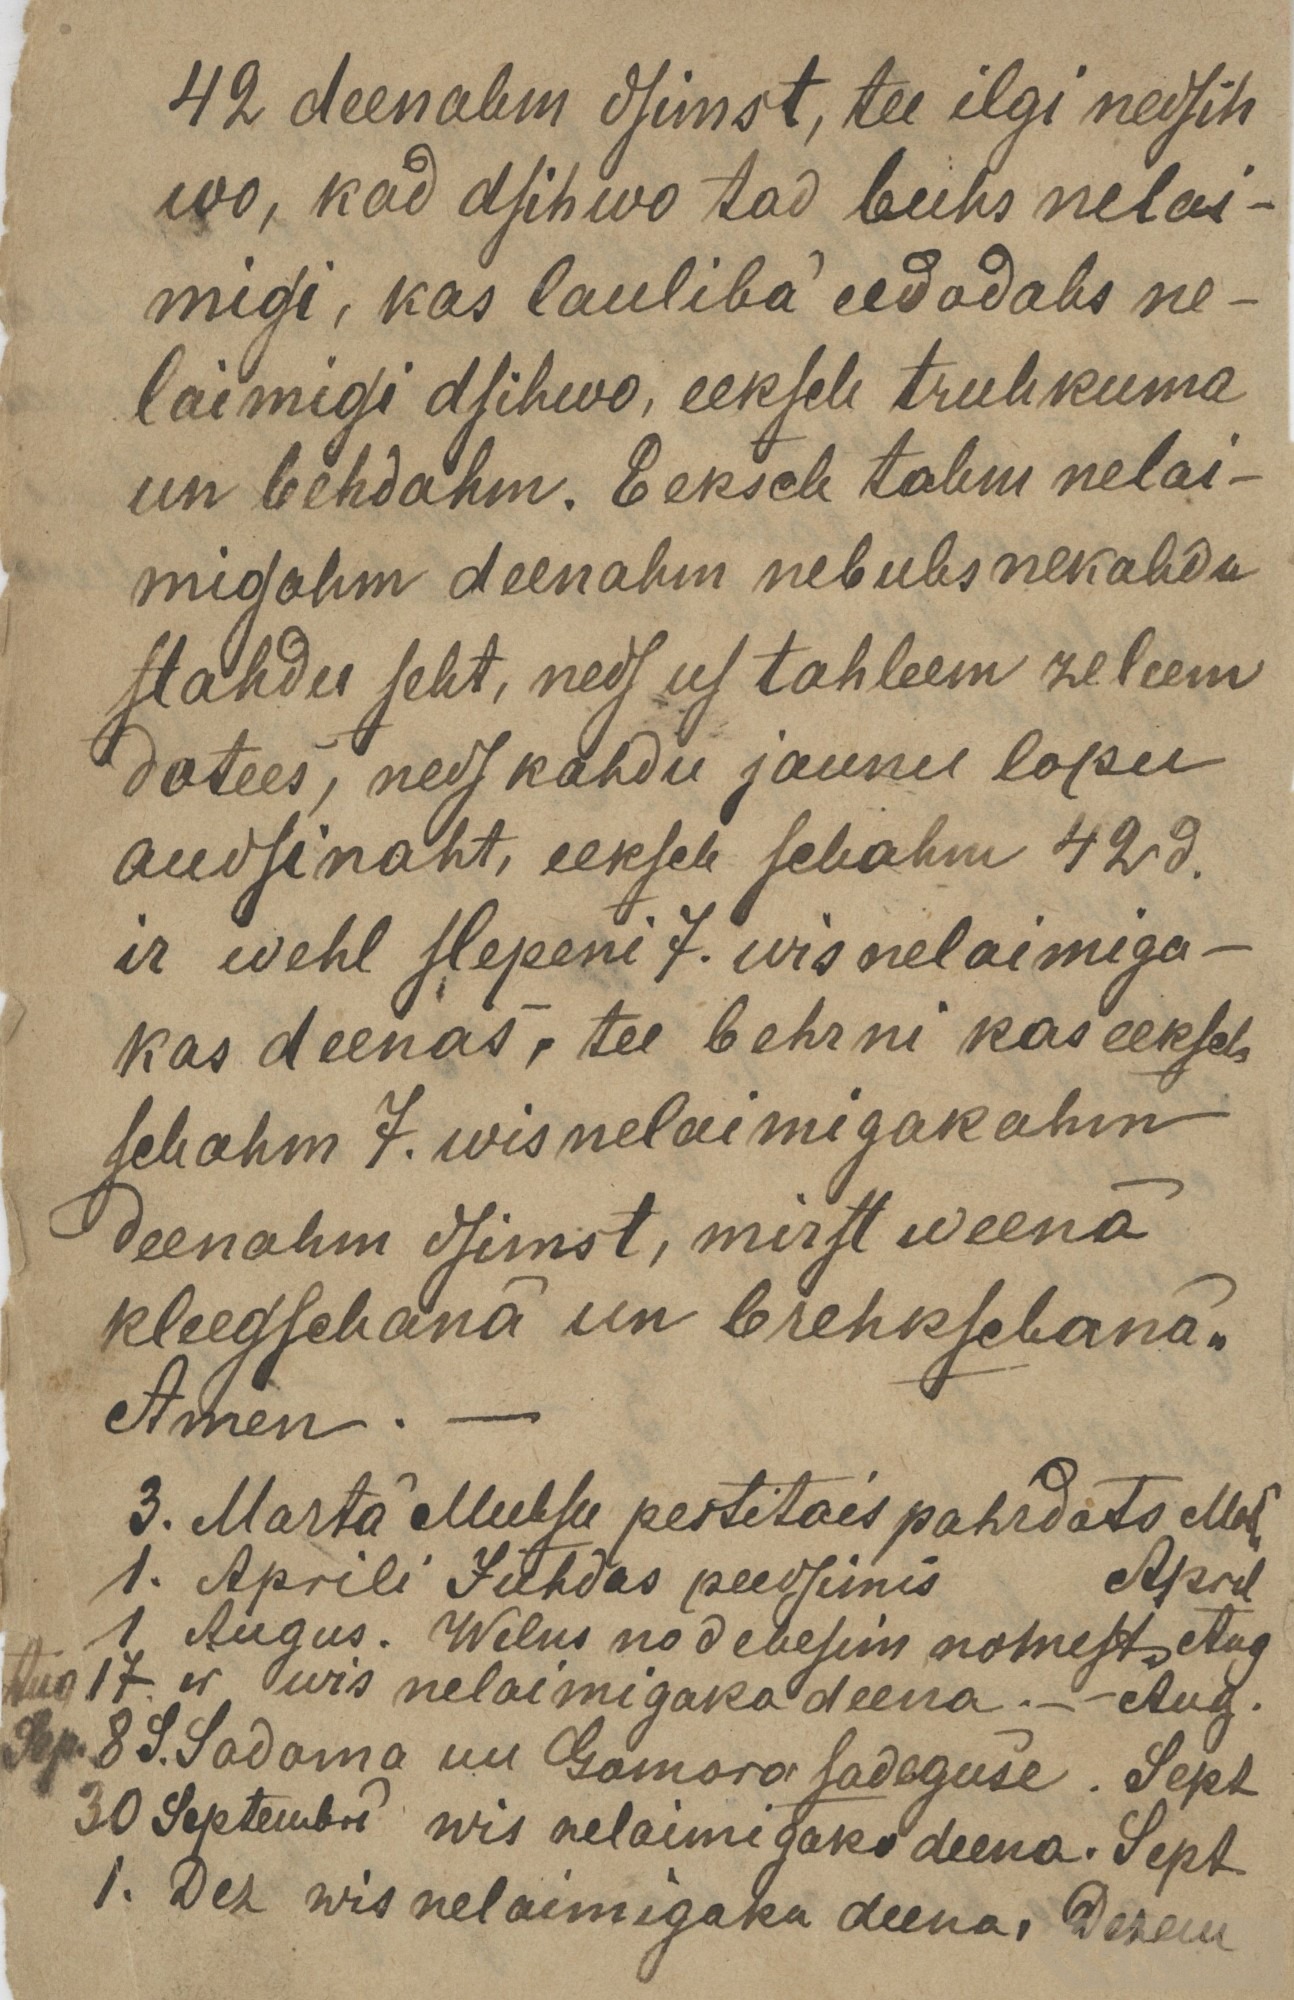 42 deenahm dsimst, tee ilgi nedsih
wo, kad dsihwo tad buhs nelai-
migi, kas laulibā eedodahs ne-
laimigi dsihwo, eeksch truhkuma
un behdahm. Eeksch tahm nelai-
migahm deenahm nebuhs nekahdu
stahdu seht, neds us tahleem zeleem
dotees, neds kahdu jaunu lopu
audsinaht, eeksch schahm 42 d.
ir wehl slepeni 7. wis nelaimiga-
kas deenas, tee behrni kas eeksch
schahm 7. wis nelaimigakahm
deenahm dsimst, mirst weenā
kleegschanā un brehkschanā.
Amen. —
3. Martā Muhsu pestitais pahrdots
1. Aprili Juhdas peedsimis April
1 Augus. Welns no debesim nomests Aug
Aug 17. wis nelaimigaka deena. — Aug.
Sep. 8 S. Sadoma un Gomora sadeguse. Sept
30 Septembri wis nelaimigaka deena. Sept
1. Dez wis nelaimigaka deena. Dezem